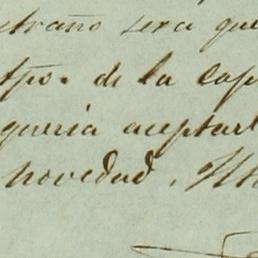 straño sera que
tpo. de la cap
queria aceptar
novedad.